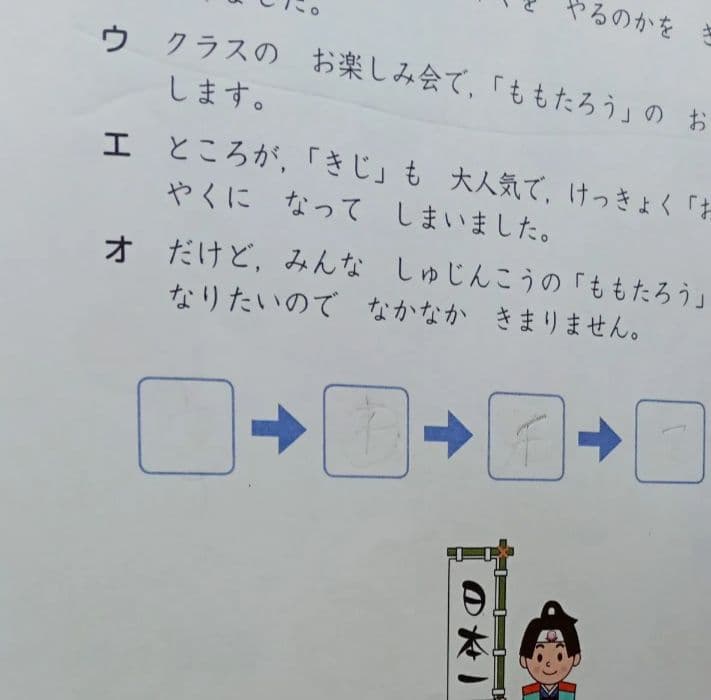 した。
やるのかを
ウ クラスの お楽しみ会で,「ももたろう」の お
します。
エ ところが,「きじ」も 大人気で, けっきょく「お
やくに なって しまいました。
オ だけど, みんな しゅじんこうの「ももたろう」
なりたいので なかなか きまりません。
日本一